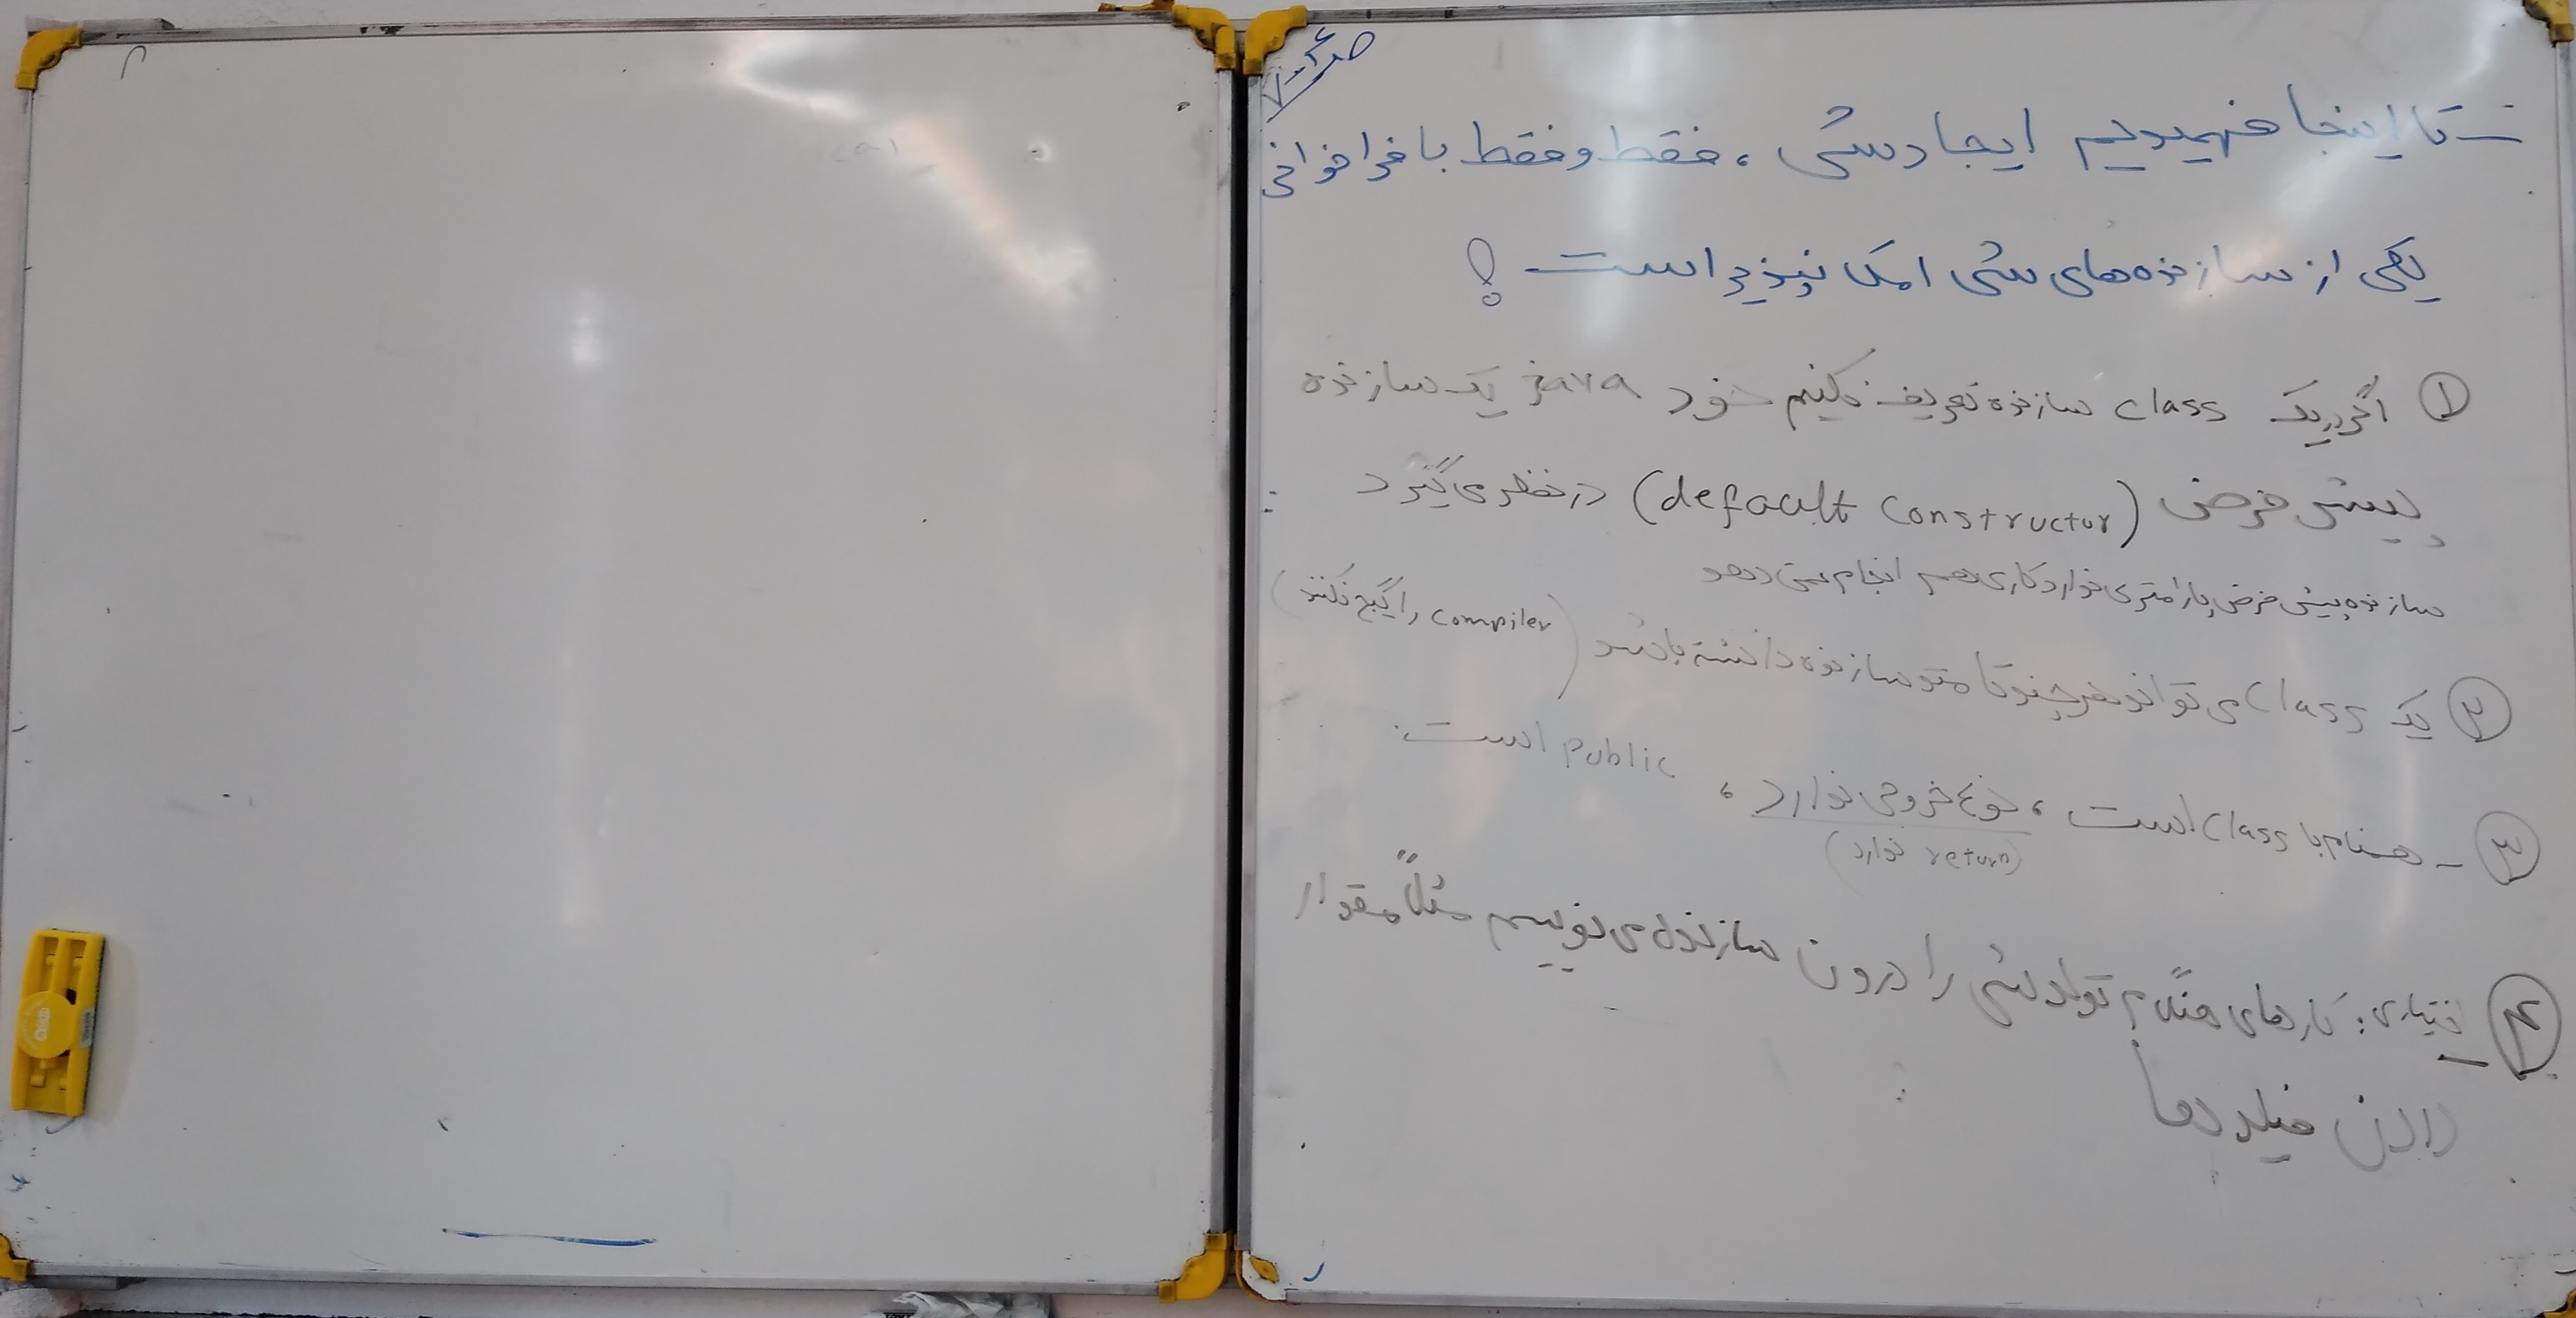 ص ۶-۷
- تا اینجا فهمیدیم ایجاد شی، فقط و فقط با فراخوانی
یکی از سازنده‌های شی امکانپذیر است!
① اگر در یک class سازنده تعریف نکنیم خود java یک سازنده
پیش فرض (default constructor) در نظر می‌گیرد:
سازنده پیش فرض پارامتری ندارد و کاری هم انجام نمی‌دهد
② یک class می‌تواند هر چند تا متد سازنده داشته باشد (compiler را گیج نکند)
③ - همنام با class است، نوع خروجی ندارد، public است.
(return ندارد)
④ اختیاری: کارهای هنگام تولد شی را درون سازنده می‌نویسیم مثلاً مقدار
دادن فیلدها